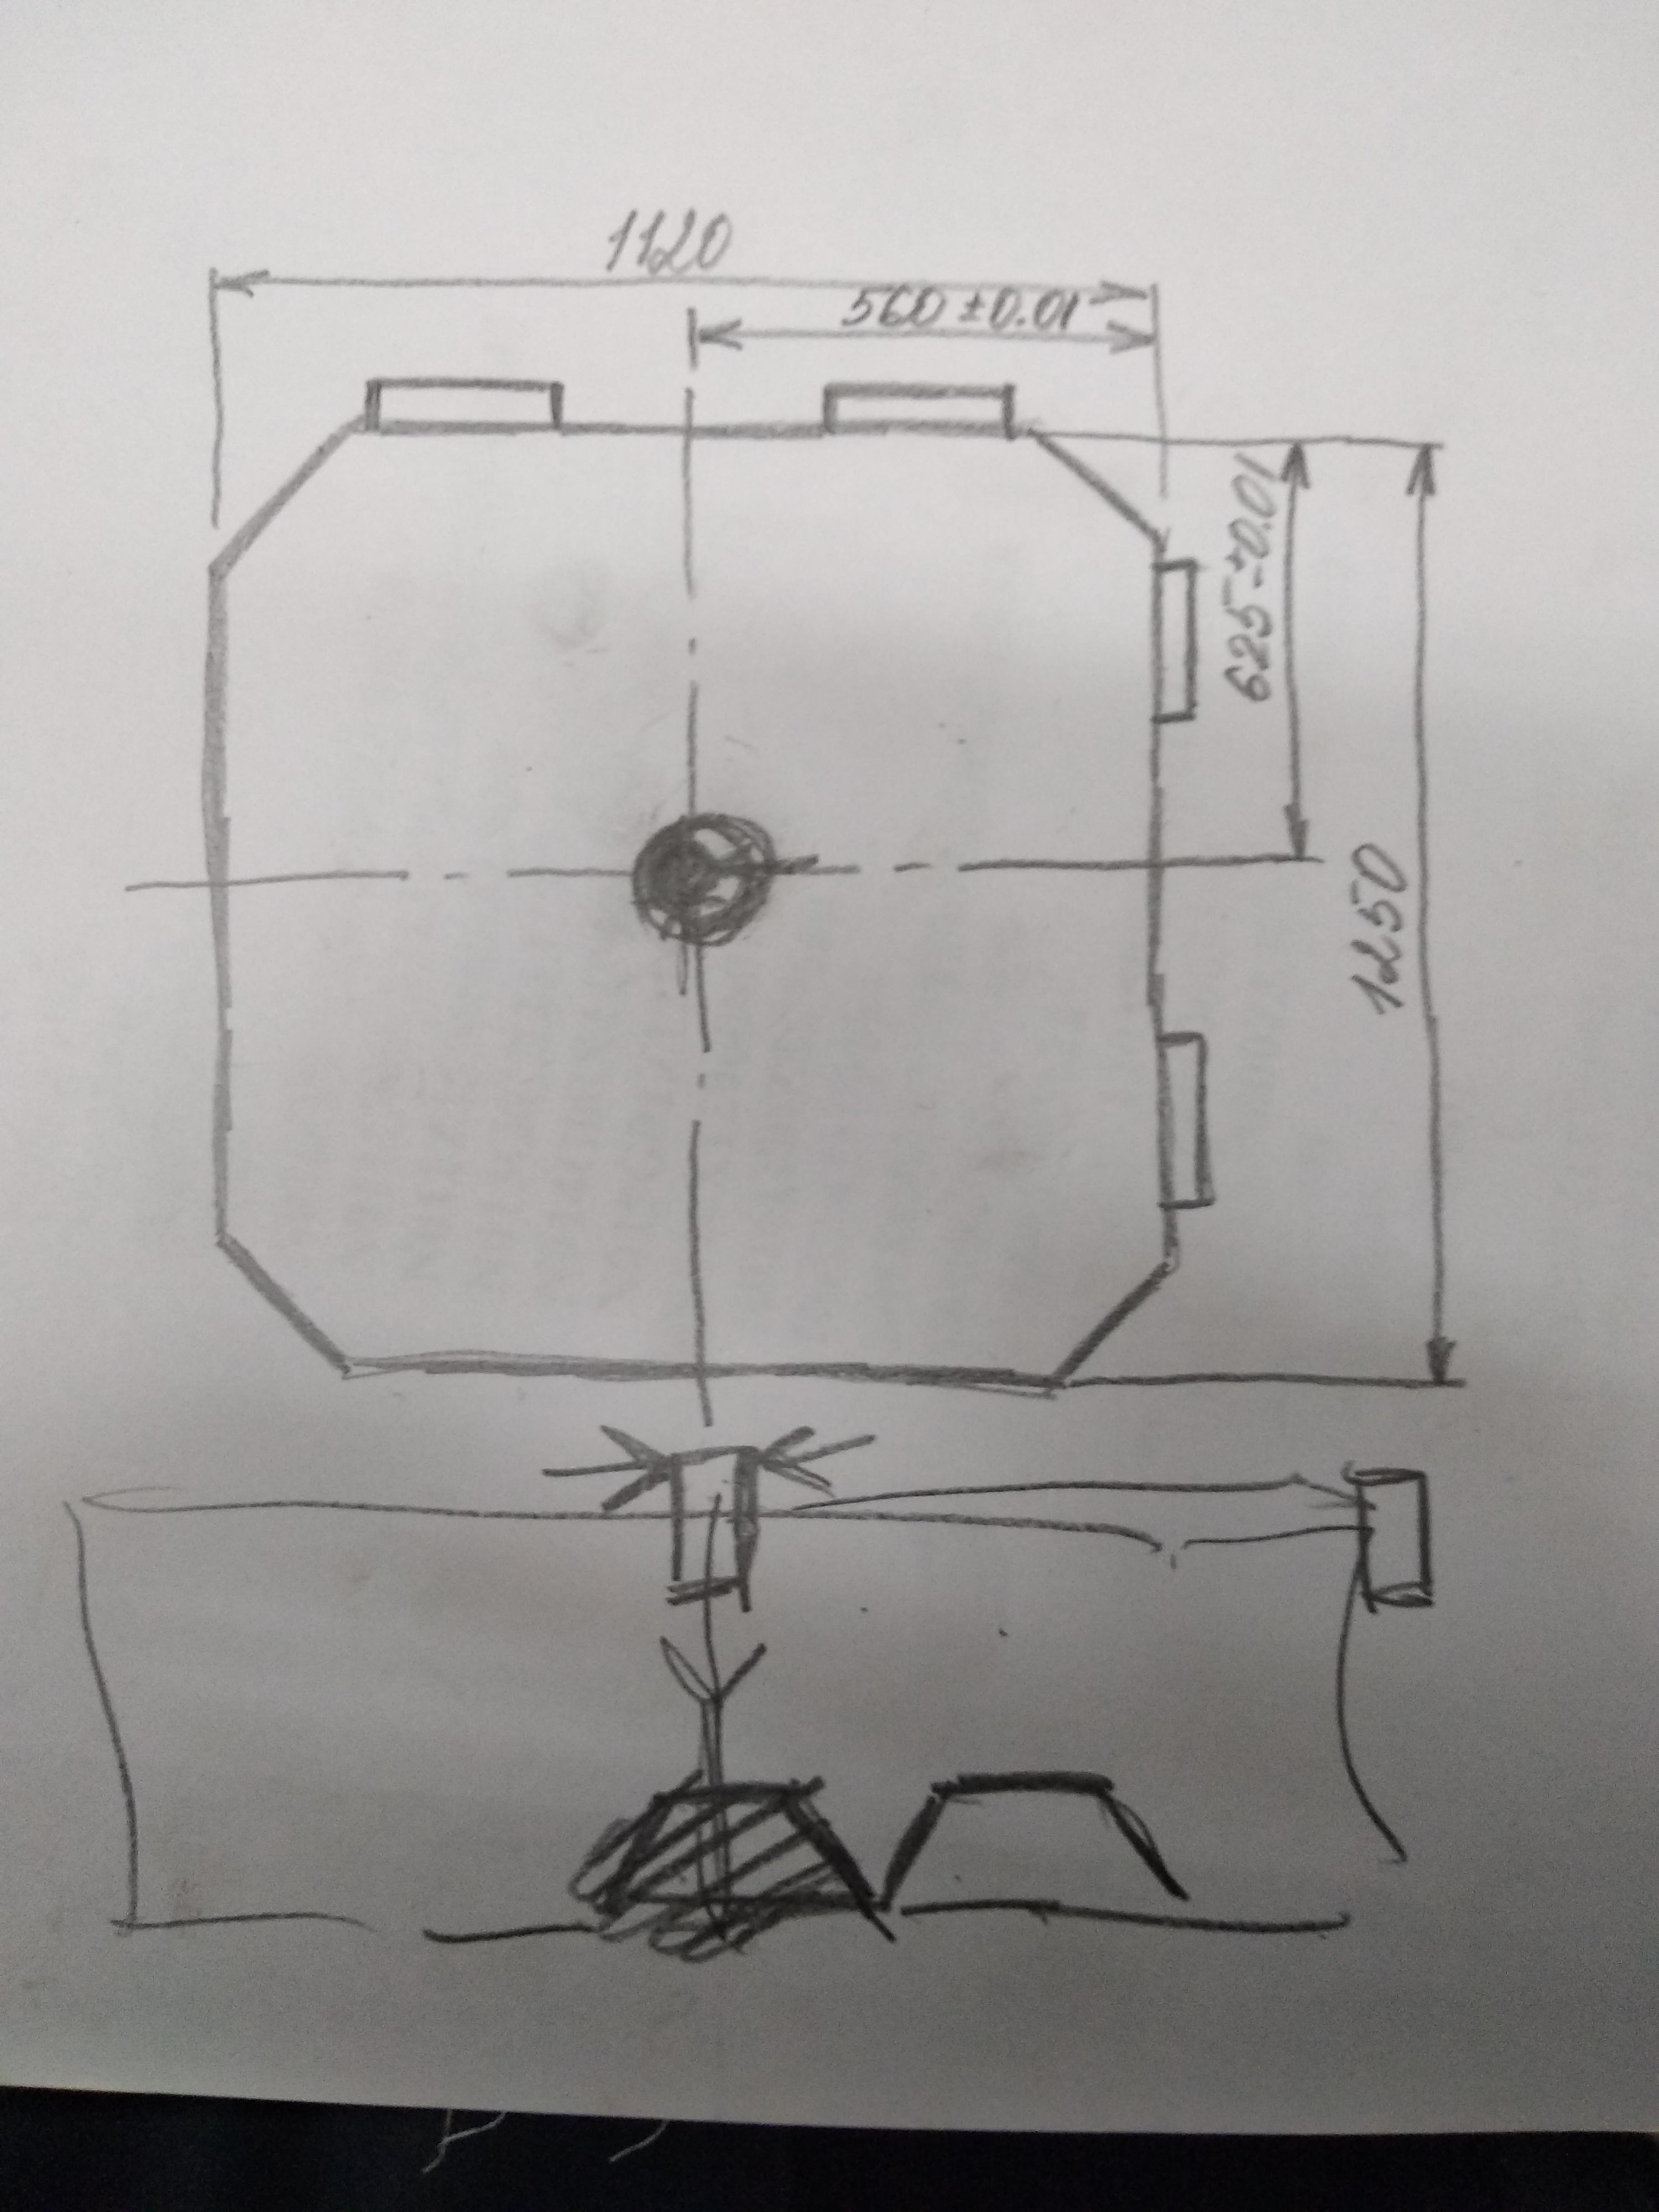 1120
560 ±0.01
625±0.01
1250